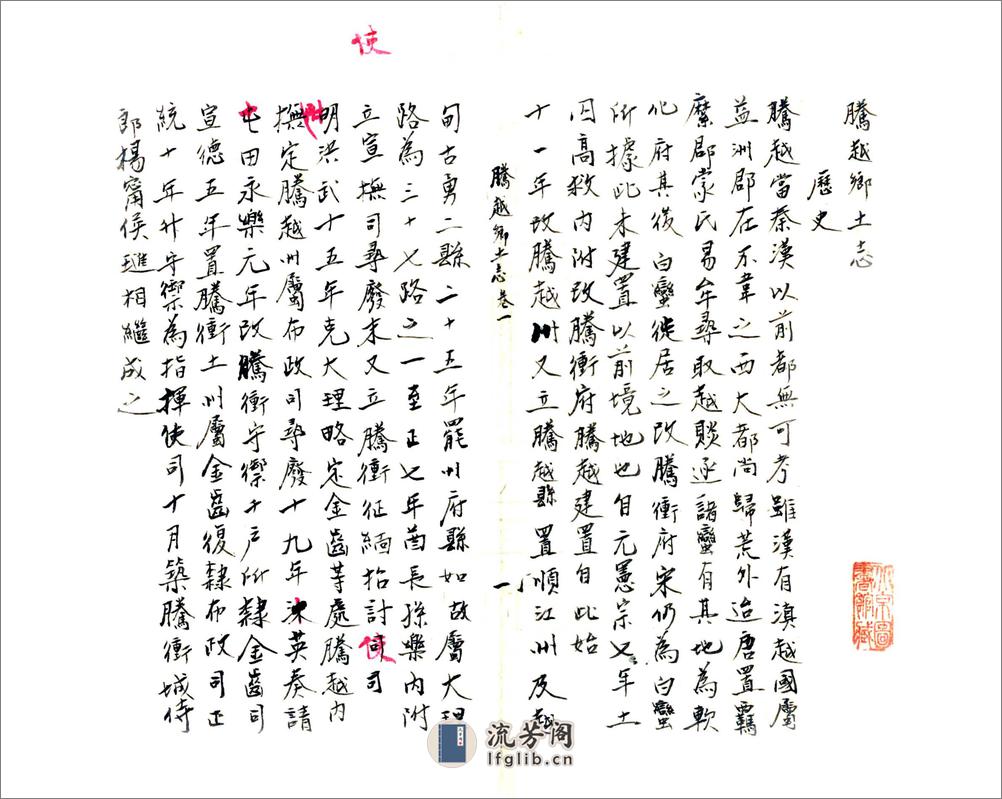 騰越鄉土志
歷史
騰越當秦漢以前都無可考雖漢有滇越國屬
益洲郡在不韋之西大都尚歸荒外迨唐置羈
縻郡蒙氏易牟尋取越賧逐諸蠻有其地為軟
化府其後白蠻徙居之改騰衝府宋仍為白蠻
所據此未建置以前境地也自元憲宗七年土
囚高救內附改騰衝府騰越建置自此始
十一年改騰越州又立騰越縣置順江州及越
騰越鄉土志卷一
一
甸古勇二縣二十五年罷州府縣如故屬大理
路為三十七路之一至正七年酋長孫樂內附
立宣撫司尋廢末又立騰衝征緬招討司司
使
使
明洪武十五年克大理略定金齒等處騰越內
撫定騰越州屬布政司尋廢十九年沐英奏請
屯田永樂元年改騰衝守禦千戶所隸金齒司
宣德五年置騰衝土州屬金齒復隸布政司正
統十年升守禦為指揮使司十月築騰衝城侍
郎楊甯侯璡相繼成之
北京圖
書館藏
流芳阁
lfglib.cn